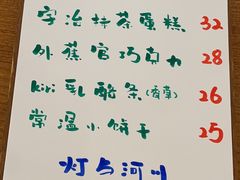 宇治抹茶蛋糕 32
外蕉官巧克力 28
kiri乳酪条(香草) 26
常温小饼干 25
灯与河川